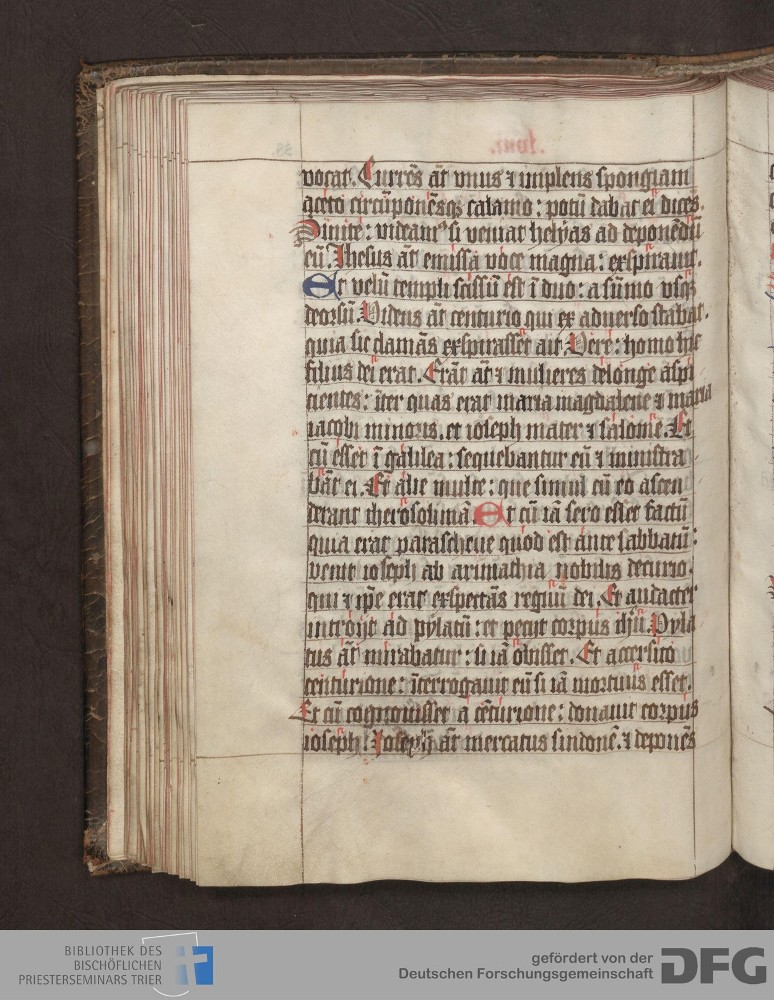 vocat. Currēs āt vnus ⁊ implens spongiam
aceto circūponēsqꝫ calamo: potū dabat ei dicēs.
Sinite: videamꝰ si veniat helyas ad deponēdū
eū. Ihesus āt emissa voce magna: exspirauit.
Et velū templi scissū est ī duo: a sūmo vsqꝫ
deorsū. Videns āt centurio qui ex aduerso stabat.
quia sic clamās exspirasset ait. Vere: homo hic
filius dei erat. Erāt āt ⁊ mulieres delonge aspi
cientes: īter quas erat maria magdalene ⁊ maria
iacobi minoris. et ioseph mater ⁊ salome. Et
cū esset ī galilea: sequebantur eū ⁊ ministra
bāt ei. Et alie multe: que simul cū eo ascen
derant iherosolimā. Et cū iā sero esset factū
quia erat parasceue quod est ante sabbatū:
venit ioseph ab arimathia nobilis decurio.
qui ⁊ ip̄e erat exspectās regnū dei. Et audacter
introijt ad pylatū: et petijt corpus ihū. Pyla
tus āt mirabatur: si iā obisset. Et accersito
centurione: īterrogauit eū si iā mortuus esset.
Et cū cognouisset a cēturione: donauit corpus
ioseph. Ioseph āt mercatus sindonē. ⁊ deponēs
BIBLIOTHEK DES
BISCHÖFLICHEN
PRIESTERSEMINARS TRIER
gefördert von der
Deutschen Forschungsgemeinschaft
DFG